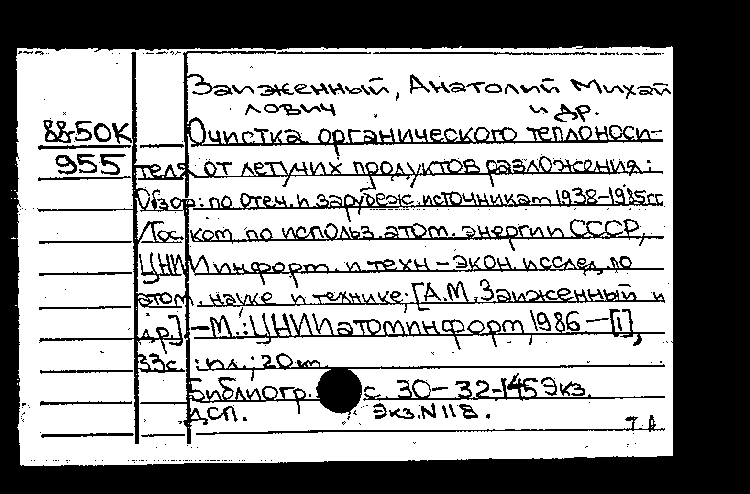 Заиженный, Анатолий Михай
лович и др.
88-50К Очистка органического теплоноси-
955 теля от летучих продуктов разложения:
Обзор: по отеч. и зарубеж. источникам 1938-1985гг
/Гос. ком. по использ. атом. энергии СССР,
ЦНИИинформ. и техн-экон. исслед. по
атом. науке и технике; [А.М. Заиженный и
др.]. -М.: ЦНИИатоминформ, 1986 -[1],
33с. : ил.; 20см.
Библиогр. с. 30-32-145 Экз.
ДСП. Экз.N118.